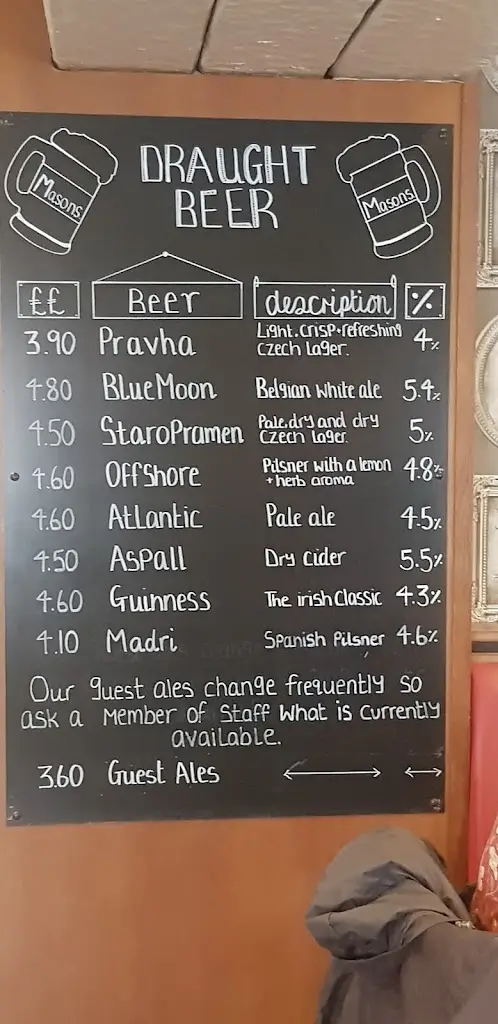 DRAUGHT
BEER
Masons
Masons
££ Beer description %
3.90 Pravha Light.crisp+refreshing czech lager. 4%
4.80 BlueMoon Belgian white ale 5.4%
4.50 StaroPramen Pale.dry and dry czech lager. 5%
4.60 Offshore Pilsner with a lemon + herb aroma 4.8%
4.60 Atlantic Pale ale 4.5%
4.50 Aspall Dry cider 5.5%
4.60 Guinness The irish Classic 4.3%
4.10 Madri Spanish Pilsner 4.6%
Our guest ales change frequently so
ask a Member of Staff what is currently
available.
3.60 Guest Ales